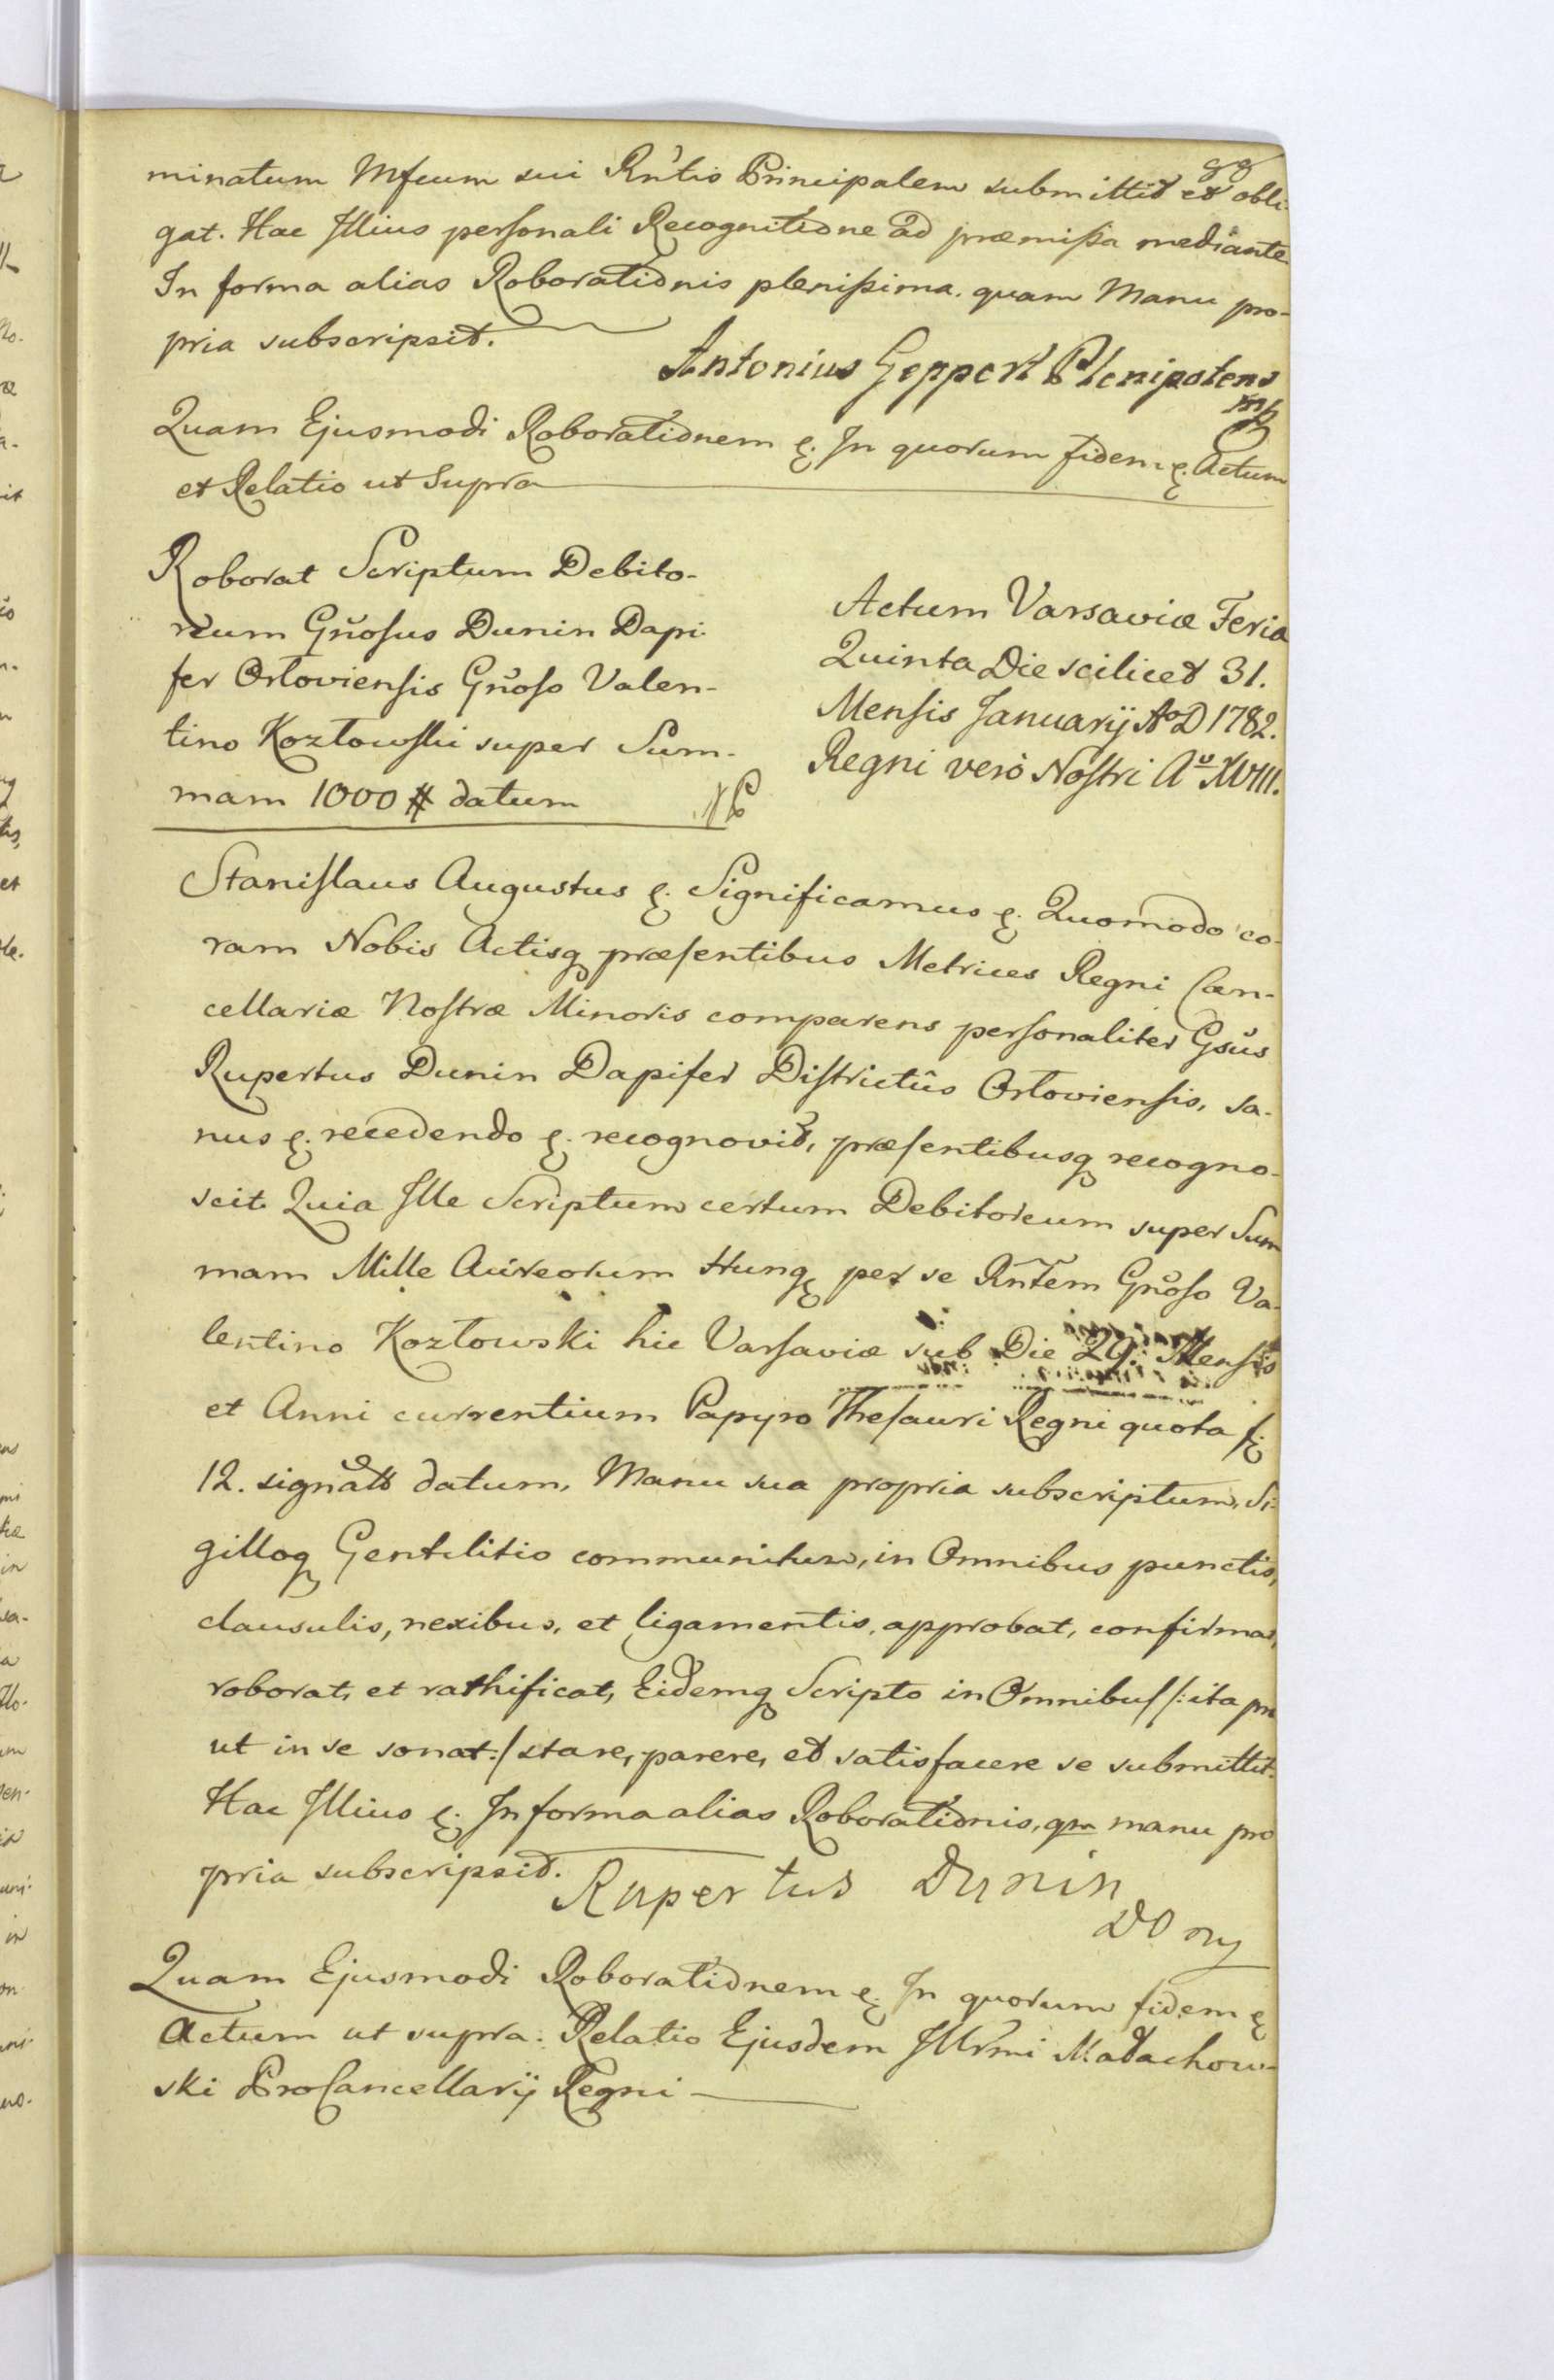 99
minatum Mfcum sui Rñtis Principalem submittit et obli-
gat. Hac Illius personali Recognitione ad præmissa mediante
In forma alias Roborationis plenissima. quam Manu pro-
pria subscripsit.
Antonius Geppert Plenipotens
mp
Quam Ejusmodi Roborationem &. In quorum fidem &. Actum
et Relatio ut Supra
Roborat Scriptum Debito-
reum Gñosus Dunin Dapi-
fer Orłoviensis Gñoso Valen-
tino Kozłowski super Sum-
mam 1000 # datum
Actum Varsaviæ Feria
Quinta Die scilicet 31.
Mensis Januarij Aº D 1782.
Regni verò Nostri Aº XVIII.
Stanislaus Augustus &. Significamus &. Quomodo co-
ram Nobis Actisq præsentibus Metrices Regni Can-
cellariæ Nostræ Minoris comparens personaliter Gsus
Rupertus Dunin Dapifer Districtûs Orłoviensis, sa-
nus &. recedendo &. recognovit, præsentibusq recogno-
scit. Quia Ille Scriptum certum Debitoreum super Sum
mam Mille Aureorum Hung per se Rñtem Gñoso Va-
lentino Kozłowski hic Varsaviæ sub Die 29. Mensis
et Anni currentium Papyro Thesauri Regni quota f
12. signato datum, Manu sua propria subscriptum, Si-
gilloq Gentilitio communitum, in Omnibus punctis,
clausulis, nexibus, et ligamentis, approbat, confirmat,
roborat, et rathificat, Eidemq Scripto in Omnibus /: ita pro
ut in se sonat :/ stare, parere, et satisfacere se submittit.
Hac Illius &. In forma alias Roborationis, qm manu pro
pria subscripsit.
Rupertus Dunin
DO mp
Quam Ejusmodi Roborationem &. In quorum fidem &
Actum ut supra. Relatio Ejusdem Illrmi Małachow-
ski ProCancellarij Regni